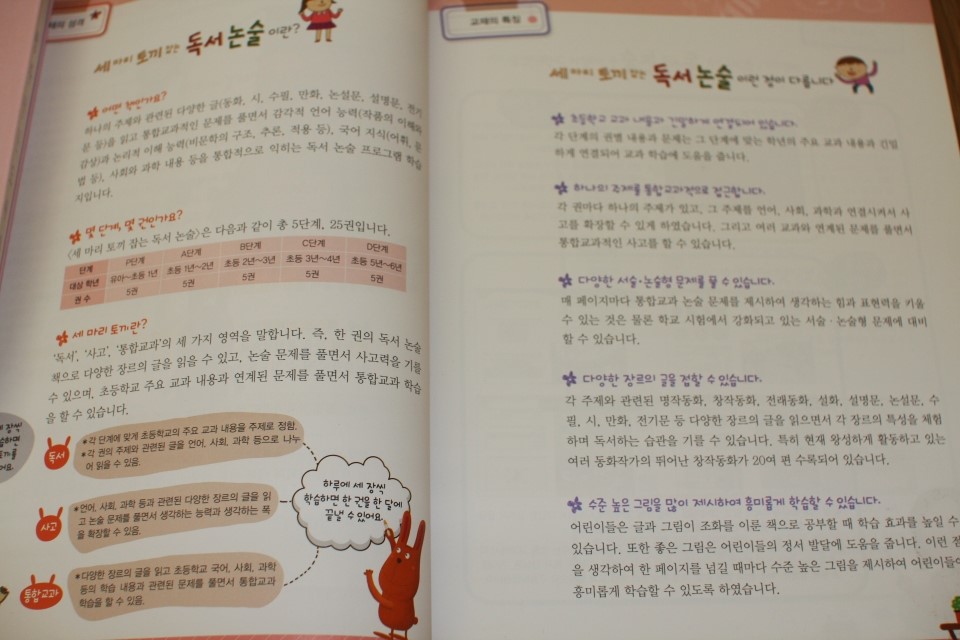 재의 성격
세 마리 토끼 잡는 독서 논술이란?
어떤 책인가요?
하나의 주제와 관련된 다양한 글(동화, 시, 수필, 만화, 논설문, 설명문, 전기
문 등)을 읽고 통합교과적인 문제를 풀면서 감각적 언어 능력(작품의 이해와
감상)과 논리적 이해 능력(비문학의 구조, 추론, 적용 등), 국어 지식(어휘, 문
법 등), 사회와 과학 내용 등을 통합적으로 익히는 독서 논술 프로그램 학습
지입니다.
몇 단계, 몇 권인가요?
〈세 마리 토끼 잡는 독서 논술〉은 다음과 같이 총 5단계, 25권입니다.
단계 P단계 A단계 B단계 C단계 D단계
대상 학년 유아~초등 1년 초등 1년~2년 초등 2년~3년 초등 3년~4년 초등 5년~6년
권 수 5권 5권 5권 5권 5권
세 마리 토끼란?
'독서', '사고', '통합교과'의 세 가지 영역을 말합니다. 즉, 한 권의 독서 논술
책으로 다양한 장르의 글을 읽을 수 있고, 논술 문제를 풀면서 사고력을 기를
수 있으며, 초등학교 주요 교과 내용과 연계된 문제를 풀면서 통합교과 학습
을 할 수 있습니다.
독서
•각 단계에 맞게 초등학교의 주요 교과 내용을 주제로 정함.
•각 권의 주제와 관련된 글을 언어, 사회, 과학 등으로 나누
어 읽을 수 있음.
사고
•언어, 사회, 과학 등과 관련된 다양한 장르의 글을 읽
고 논술 문제를 풀면서 생각하는 능력과 생각하는 폭
을 확장할 수 있음.
통합교과
•다양한 장르의 글을 읽고 초등학교 국어, 사회, 과학
등의 학습 내용과 관련된 문제를 풀면서 통합교과
학습을 할 수 있음.
하루에 세 장씩
학습하면 한 권을 한 달에
끝낼 수 있어요.
교재의 특징
세 마리 토끼 잡는 독서 논술 이런 점이 다릅니다
초등학교 교과 내용과 긴밀하게 연결되어 있습니다.
각 단계의 권별 내용과 문제는 그 단계에 맞는 학년의 주요 교과 내용과 긴밀
하게 연결되어 교과 학습에 도움을 줍니다.
하나의 주제를 통합교과적으로 접근합니다.
각 권마다 하나의 주제가 있고, 그 주제를 언어, 사회, 과학과 연결시켜서 사
고를 확장할 수 있게 하였습니다. 그리고 여러 교과와 연계된 문제를 풀면서
통합교과적인 사고를 할 수 있습니다.
다양한 서술·논술형 문제를 풀 수 있습니다.
매 페이지마다 통합교과 논술 문제를 제시하여 생각하는 힘과 표현력을 키울
수 있는 것은 물론 학교 시험에서 강화되고 있는 서술·논술형 문제에 대비
할 수 있습니다.
다양한 장르의 글을 접할 수 있습니다.
각 주제와 관련된 명작동화, 창작동화, 전래동화, 설화, 설명문, 논설문, 수
필, 시, 만화, 전기문 등 다양한 장르의 글을 읽으면서 각 장르의 특성을 체험
하며 독서하는 습관을 기를 수 있습니다. 특히 현재 왕성하게 활동하고 있는
여러 동화작가의 뛰어난 창작동화가 20여 편 수록되어 있습니다.
수준 높은 그림을 많이 제시하여 흥미롭게 학습할 수 있습니다.
어린이들은 글과 그림이 조화를 이룬 책으로 공부할 때 학습 효과를 높일 수
있습니다. 또한 좋은 그림은 어린이들의 정서 발달에 도움을 줍니다. 이런 점
을 생각하여 한 페이지를 넘길 때마다 수준 높은 그림을 제시하여 어린이들이
흥미롭게 학습할 수 있도록 하였습니다.